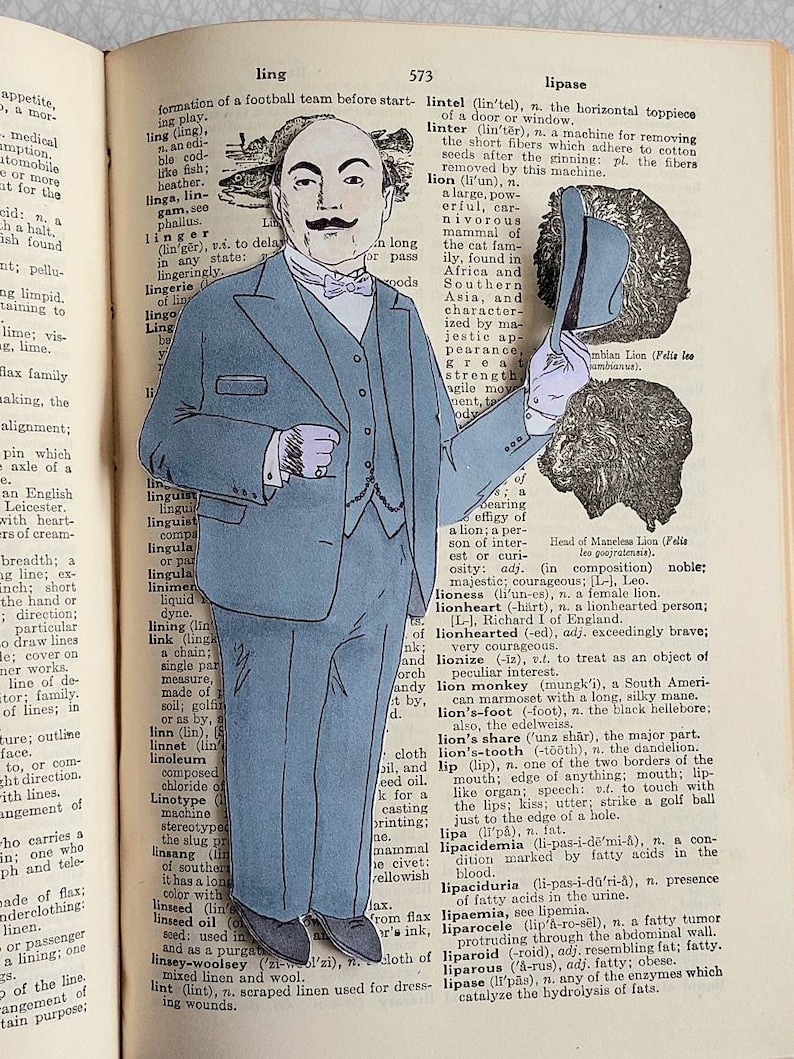 appetite,
o, a mor-
medical
umption.
utomobile
e or more
nt for the
cid: n. a
h a halt.
ish found
nt; pellu-
ng limpid.
taining to
lime; vis-
ng, lime.
flax family
making, the
alignment;
pin which
axle of a
e.
an English
Leicester.
with heart-
ers of cream-
breadth; a
ng line; ex-
inch; short
the hand or
; direction;
particular
o draw lines
le; cover on
ner works.
line of de-
itor; family.
of lines; in
ture; outline
face.
to, or com-
ght direction.
with lines.
angement of
who carries a
in; one who
ph and tele-
ade of flax;
nderclothing;
linen.
or passenger
a lining; one
gs.
p of the line.
rangement of
tain purpose;
ling 573 lipase
formation of a football team before start-
ing play.
ling (ling),
n. an edi-
ble cod-
like fish;
heather.
linga, lin-
gam, see
phallus.
linger
(lin'gẽr), v.i. to dela in long
in any state: or pass
lingeringly.
lingerie goods
of lin
lingo
Ling
linguist
lingui
linguist
compa
lingula
or pa
lingula
linimen
liquid
dy.
lining (lin
link (lingk of
a chain; nk;
single par and
measure, orch
made of p andy
soil; golfi t by,
or as by, a d.
linn (lin), [S
linnet (lin'
linoleum cloth
composed oil, and
chloride of eed oil.
Linotype (l k for a
machine casting
stereotype printing;
the slug pr ne.
linsang (lin mammal
of souther e civet:
it has a long yellowish
color with
linseed (lin's lax.
linseed oil (o from flax
seed: used in er's ink,
and as a purga
linsey-woolsey ('zi-w ol'zi), n. cloth of
mixed linen and wool.
lint (lint), n. scraped linen used for dress-
ing wounds.
lintel (lin'tel), n. the horizontal toppiece
of a door or window.
linter (lin'tẽr), n. a machine for removing
the short fibers which adhere to cotton
seeds after the ginning: pl. the fibers
removed by this machine.
lion (li'un), n.
a large, pow-
erful, car-
nivorous
mammal of
the cat fam-
ily, found in
Africa and
Southern
Asia, and
character-
ized by ma-
jestic ap-
pearance,
great
strength,
agile move
ment, ta
body
of
s; a
bearing
e effigy of
a lion; a per-
son of inter-
est or curi-
osity: adj. (in composition) noble;
majestic; courageous; [L-], Leo.
mbian Lion (Felis leo
gambianus).
Head of Maneless Lion (Felis
leo goojratensis).
lioness (li'un-es), n. a female lion.
lionheart (-härt), n. a lionhearted person;
[L-], Richard I of England.
lionhearted (-ed), adj. exceedingly brave;
very courageous.
lionize (-īz), v.t. to treat as an object of
peculiar interest.
lion monkey (mungk'i), a South Ameri-
can marmoset with a long, silky mane.
lion's-foot (-foot), n. the black hellebore;
also, the edelweiss.
lion's share ('unz shãr), the major part.
lion's-tooth (-tōōth), n. the dandelion.
lip (lip), n. one of the two borders of the
mouth; edge of anything; mouth; lip-
like organ; speech: v.t. to touch with
the lips; kiss; utter; strike a golf ball
just to the edge of a hole.
lipa (lī'pȧ), n. fat.
lipacidemia (li-pas-i-dē'mi-ȧ), n. a con-
dition marked by fatty acids in the
blood.
lipaciduria (li-pas-i-dū'ri-ȧ), n. presence
of fatty acids in the urine.
lipaemia, see lipemia.
liparocele (lip'ȧ-ro-sēl), n. a fatty tumor
protruding through the abdominal wall.
liparoid (-roid), adj. resembling fat; fatty.
liparous ('ȧ-rus), adj. fatty; obese.
lipase (lī'pās), n. any of the enzymes which
catalyze the hydrolysis of fats.